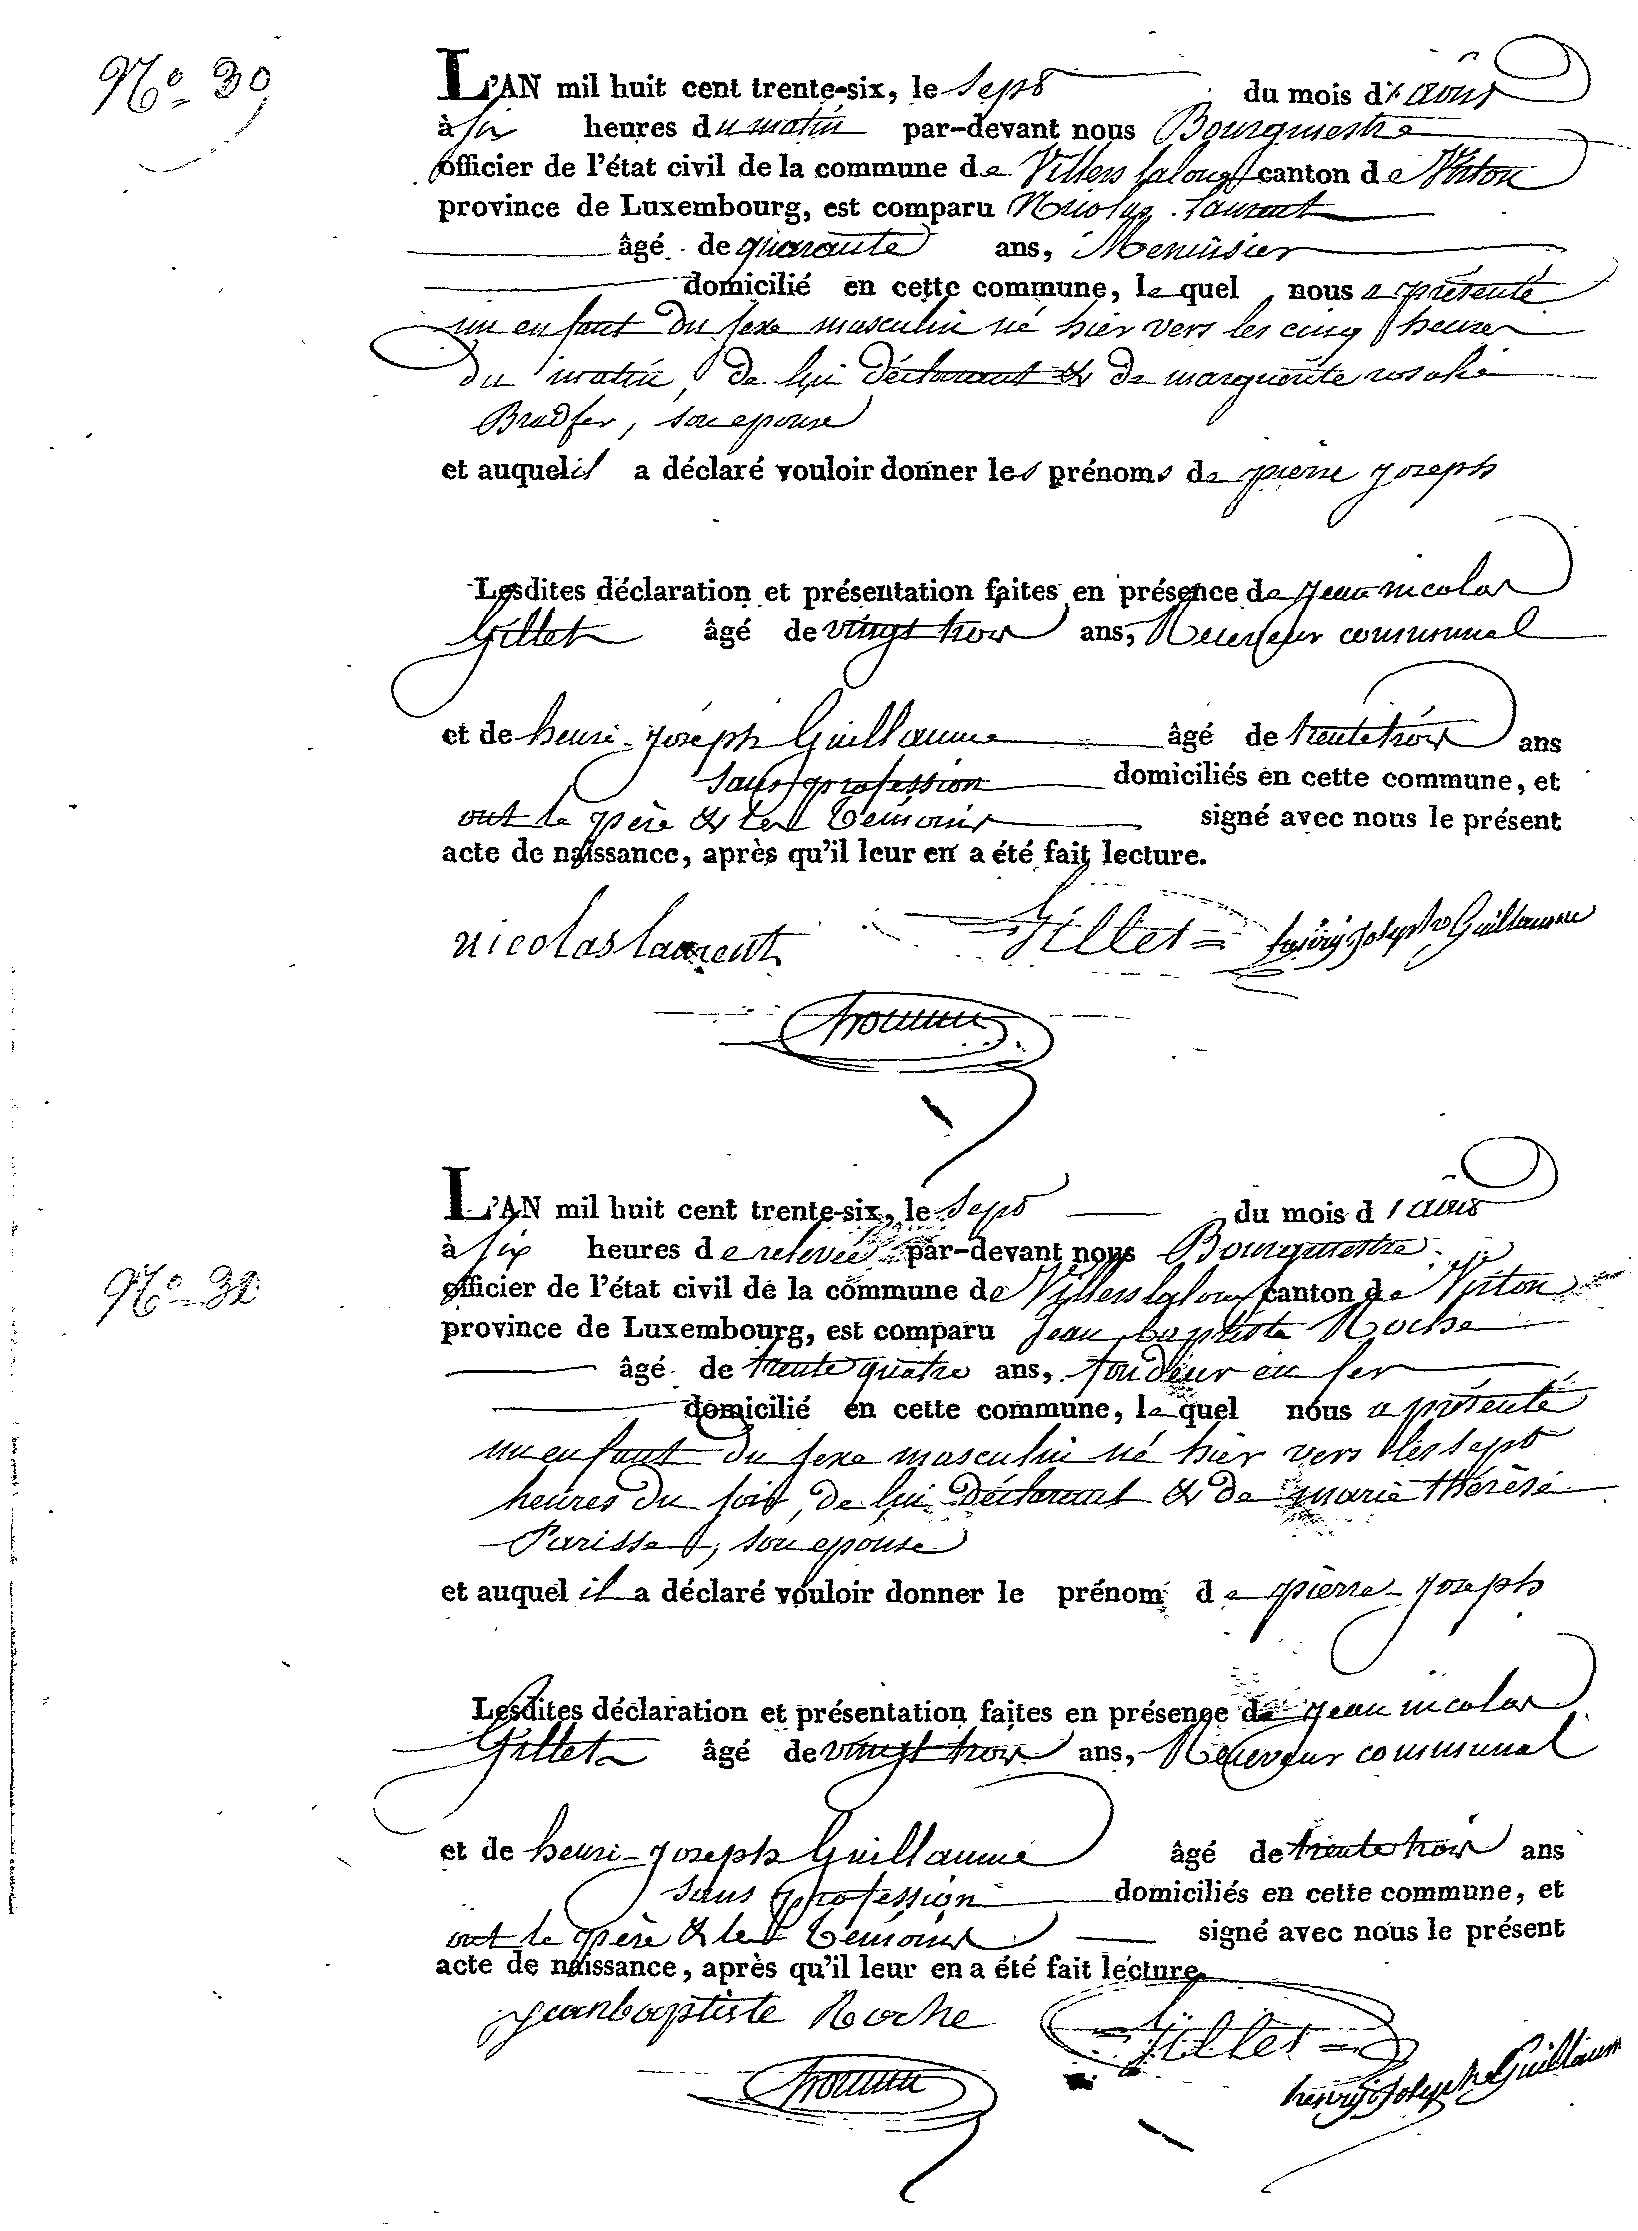 N° 30
L'AN mil huit cent trente-six, le sept du mois d'août
à six heures du matin par-devant nous Bourgmestre
officier de l'état civil de la commune de Villers laloue canton de Virton
province de Luxembourg, est comparu Nicolas Laurent
âgé de quarante ans, Menuisier
domicilié en cette commune, lequel nous a présenté
un enfant du sexe masculin né hier vers les cinq heures
du matin, de lui déclarant & de marguerite rosalie
Bradfer, son epouse
et auquel il a déclaré vouloir donner les prénoms de pierre joseph
Lesdites déclaration et présentation faites en présence de jean nicolas
Gillet âgé de vingt trois ans, Receveur communal
et de henri-joseph Guillaume âgé de trente trois ans
sans profession domiciliés en cette commune, et
ont le père & les témoins signé avec nous le présent
acte de naissance, après qu'il leur en a été fait lecture.
nicolas laurent Gillet henry joseph Guillaume
N° 31
L'AN mil huit cent trente-six, le sept du mois d'août
à six heures de relevée par-devant nous Bourgmestre
officier de l'état civil de la commune de Villers laloue canton de Virton
province de Luxembourg, est comparu Jean baptiste Roche
âgé de trente quatre ans, fondeur en fer
domicilié en cette commune, lequel nous a présenté
un enfant du sexe masculin né hier vers les sept
heures du soir, de lui déclarant & de marie thérèse
Parisset, son epouse
et auquel il a déclaré vouloir donner le prénom de pierre-joseph
Lesdites déclaration et présentation faites en présence de jean nicolas
Gillet âgé de vingt trois ans, Receveur communal
et de henri-joseph Guillaume âgé de trente trois ans
sans profession domiciliés en cette commune, et
ont le père & les témoins signé avec nous le présent
acte de naissance, après qu'il leur en a été fait lecture.
jeanbaptiste Roche Gillet
henry joseph Guillaume